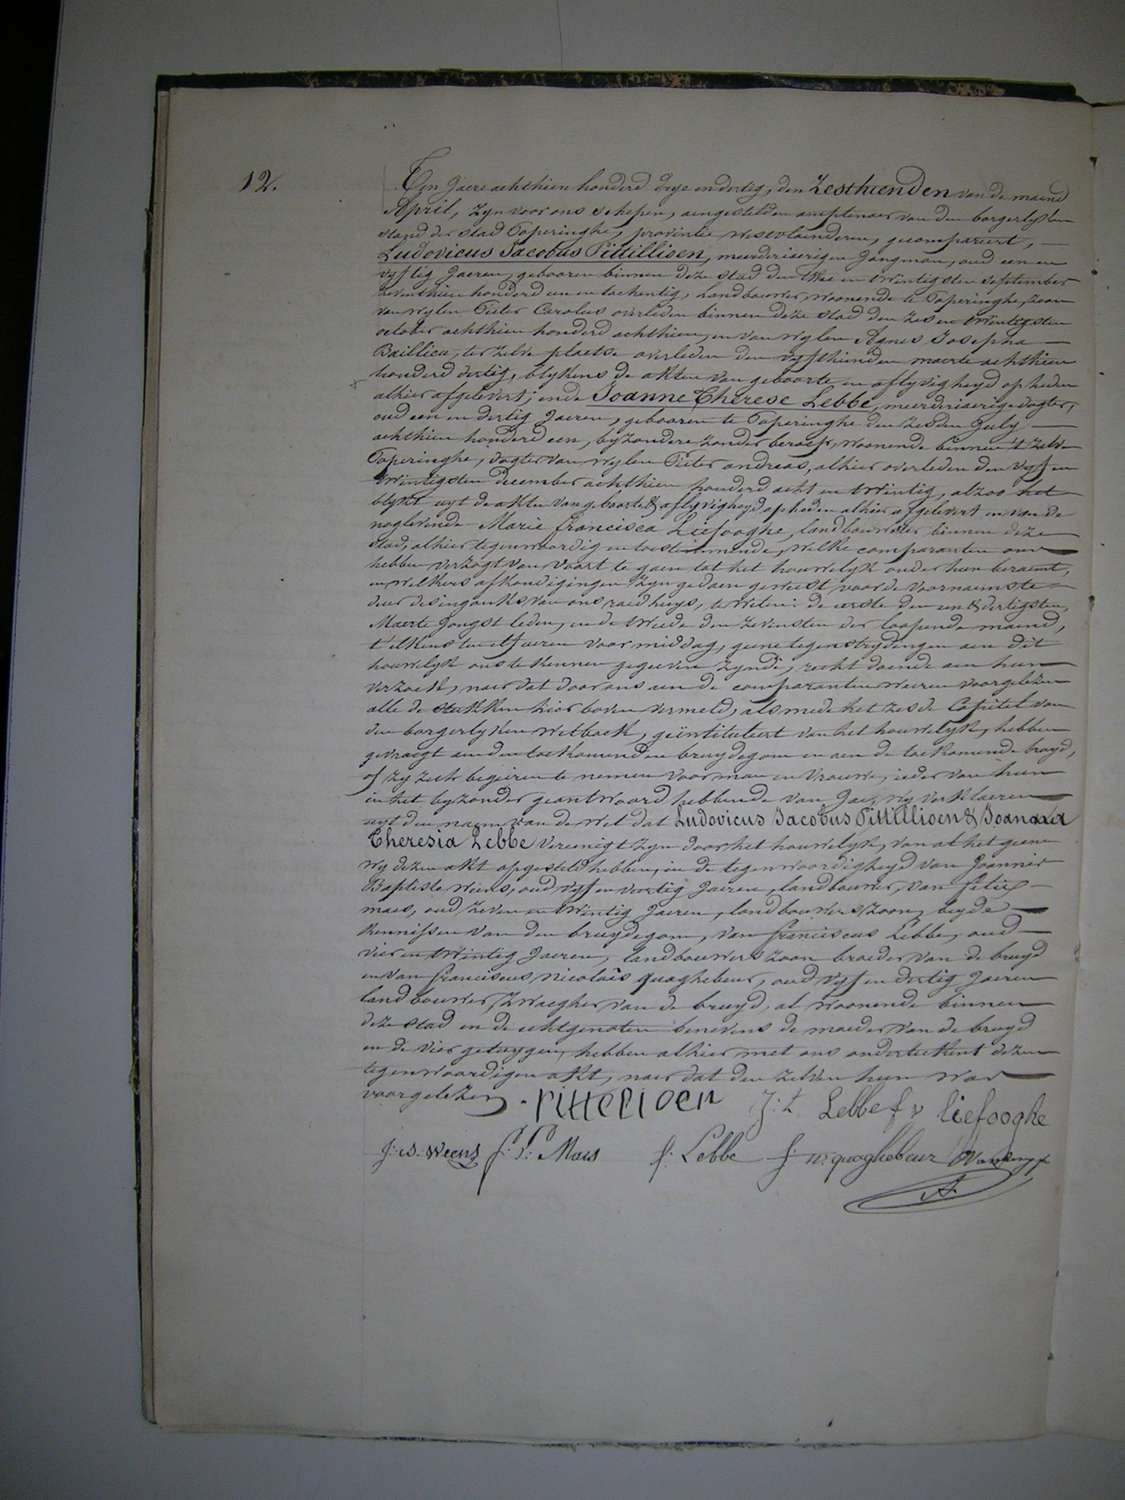 12.
Ten Jaere achthien honderd drye en dertig, den Zesthienden van de maend
April, zyn voor ons schepen, aengestelden amptenaer van den borgerlyken
stand der stad Poperinghe, provintie Westvlaenderen, gecompareert,
Ludovicus Jacobus Pittillioen, meerderjaerigen Jongman, oud een en
vyftig Jaeren, gebooren binnen deze stad den twee en twintigsten september
zeventhien honderd een en tachentig, Landbouwer, woonende te Poperinghe, zoon
van wylen Pieter Carolus overleden binnen deze stad den zes en twintigsten
october achthien honderd achthien, en van wylen Agnes Josepha
Baillieu, ter zelve plaetse overleden den vyfthienden maerte achthien
honderd dertig, blykens de akten van geboorte en aflyvigheyd op heden
alhier afgelevert; ende Joanne Therese Lebbe, meerderjaerige dogter,
oud een en dertig Jaeren, gebooren te Poperinghe den zesden July
achthien honderd een, byzondere zonder beroep, woonende binnen 't zelve
Poperinghe, dogter van wylen Pieter andreas, alhier overleden den vyf en
twintigsten December achthien honderd acht en twintig, alzoo het
blykt uyt de akten van geboorte & aflyvigheyd op heden alhier afgelevert en van de
noglevende Marie francisca Liefooghe, landbouwster binnen deze
stad, alhier tegenwoordig en toestemmende, welke comparanten ons
hebben verzogt van voort te gaen tot het houwelyk onder hun beraemt,
en welkers afkondigingen zyn gedaen geweest voor de voornaemste
deur des ingangs van ons raedhuys, te weten: de eerste den een & dertigsten
Maerte Jongst leden, en de tweede den zevensten der loopende maend,
t'elkens ten elf ueren voor middag, geene tegenstrydingen aen dit
houwelyk ons te kennen gegeven zynde, recht doende aen hun
verzoek, naer dat door ons aen de comparanten weren voorgelezen
alle de stukken hier boven vermeld, als mede het zesde Capitel van
den borgerlyken wetboek, geintituleert van het houwelyk, hebben
gevraegt aen den toekomenden bruydegom en aen de toekomende bruyd,
of zy zich begeiren te nemen voor man en vrouwe, ieder van hun
in het byzonder geantwoord hebbende van Jae, wy verklaeren
uyt den naem van de wet dat Ludovicus Jacobus Pittillioen & Joanna
Theresia Lebbe vereenigt zyn door het houwelyk, van al het geene
wy dezen akt opgesteld hebben, in de tegenwoordigheyd van Joannes
Baptiste Weens, oud vyf en veertig Jaeren, landbouwer, van felix
maes, oud zeven en twintig Jaeren, landbouwers zoon, beyde
kennissen van den bruydegom, van franciscus Lebbe, oud
vier en twintig Jaeren, landbouwers zoon broeder van de bruyd
en van franciscus, nicolais quaghebeur, oud vyf en dertig Jaeren
landbouwer, zwaegher van de bruyd, al woonende binnen
deze stad en de echtgenoten benevens de moeder van de bruyd
en de vier getuygen, hebben alhier met ons onderteekent dezen
tegenwoordigen akt, naer dat den zelven hun was
voorgelezen
Pittelioen J: t Lebbe f v liefooghe
J: b. weens f: P: Maes f: Lebbe f: n: quaghebeur